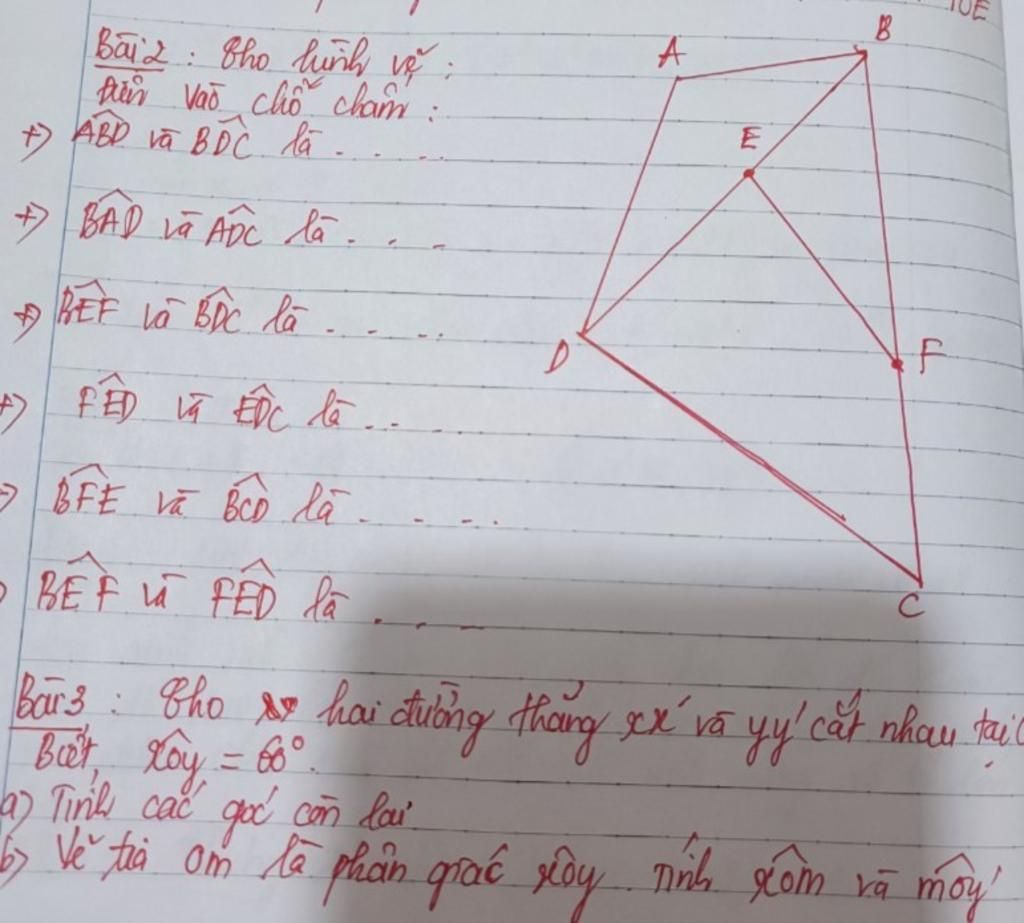 TOE
Bài 2 : Cho hình vẽ :
Điền vào chỗ chấm :
+) ABD và BDC là . . . . .
+) BAD và ADC là . . .
+) BEF và BDC là . . . . .
+) FED và EDC là . . . .
BFE và BCD là . . . . .
BEF và FED là . . . .
A
B
E
D
F
C
Bài 3 : Cho hai đường thẳng xx' và yy' cắt nhau tại
Biết, xOy = 60°.
a) Tính các góc còn lại
b) Vẽ tia Om là phân giác xOy. Tính xOm và mOy'